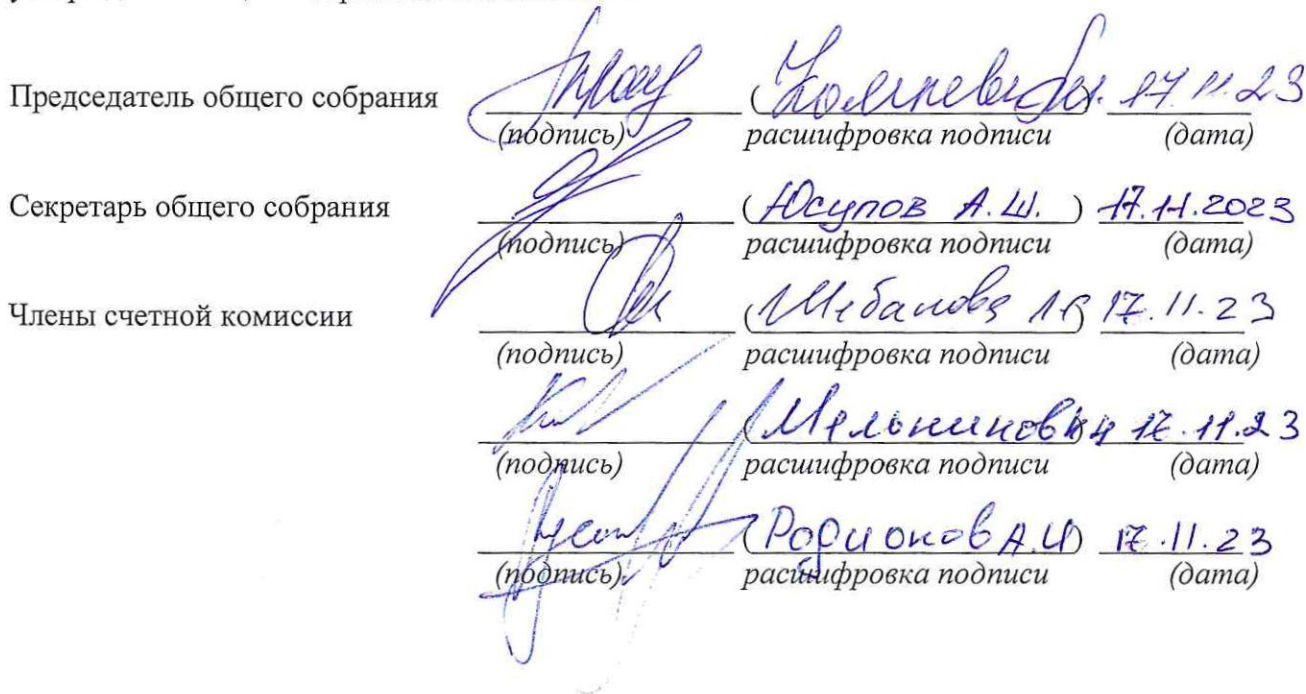 Председатель общего собрания ( ) 17.11.23
(подпись) расшифровка подписи (дата)
Секретарь общего собрания (Юсупов А.Ш.) 17.11.2023
(подпись) расшифровка подписи (дата)
Члены счетной комиссии (Шебалова ) 17.11.23
(подпись) расшифровка подписи (дата)
(Мельников ) 17.11.23
(подпись) расшифровка подписи (дата)
(Родионов А.И) 17.11.23
(подпись) расшифровка подписи (дата)